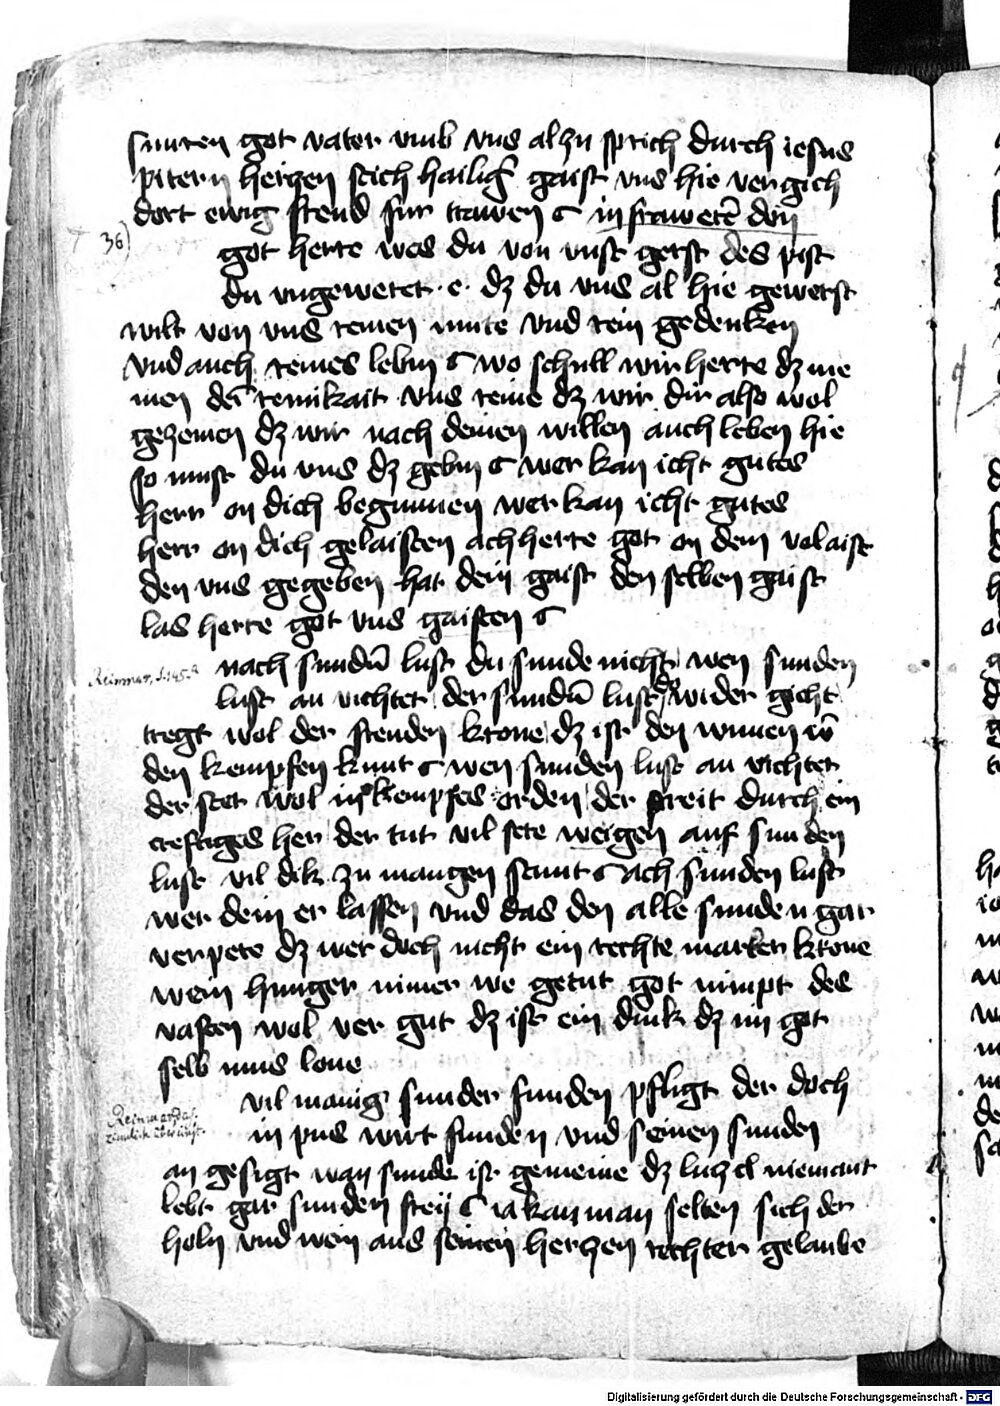 sunren got vater vmb vns al zu sprich durch iesus
pitern herczen stich hailig gaist vns hie vergich
dort ewig frend fur trawen in frawere don
36)
got herre wes du von vnst gerst des pist
du vngeweret e dz du vns al hie gewerst
wilt von vns reinen mute vnd rein gedenken
vnd auch reines lebin wo schull wir herre dz me
men der reinikait vns reine dz wir dir also wol
gezemen dz wir nach deinen willen auch leben hie
so must du vns dz gebin wer kan icht gutes
herr on dich beginnen wer kan icht gutes
herr on dich gelaisten ach herre got on dem volaist
den vns gegeben hat dein gaist den selben gaist
las herre got vns gaisten
nach sundn lust du sunde nicht wen sunden
lust an vichtet der sundn lust der wider gicht
tregt wol der frenden krone dz ist den
den kempfen kunt wen sunden lust an vichtet
der stet wol ins kempfes orden der streit durch ein
creftiges her der tut vil stete weigen auf sunden
lust vil dik zu mangen stunt ach sunden lust
wer dein er lassen vnd das den alle sunden gar
verpete dz wer doch nicht ein rechte marter krone
wein hunger nimer we getut got nimpt des
vasten wol ver gut dz ist ein dink dz im got
selb mus lone
vil manig sunder sunden pfligt der doch
in pus wirt funden vnd seinen sunden
an gesigt wan sunde ist gemeine dz luczel niemant
lebt gar sunden frey ia kan man selten sich der
holn vnd wein aus seinen herczen rechter gelaube
Digitalisierung gefördert durch die Deutsche Forschungsgemeinschaft - DFG